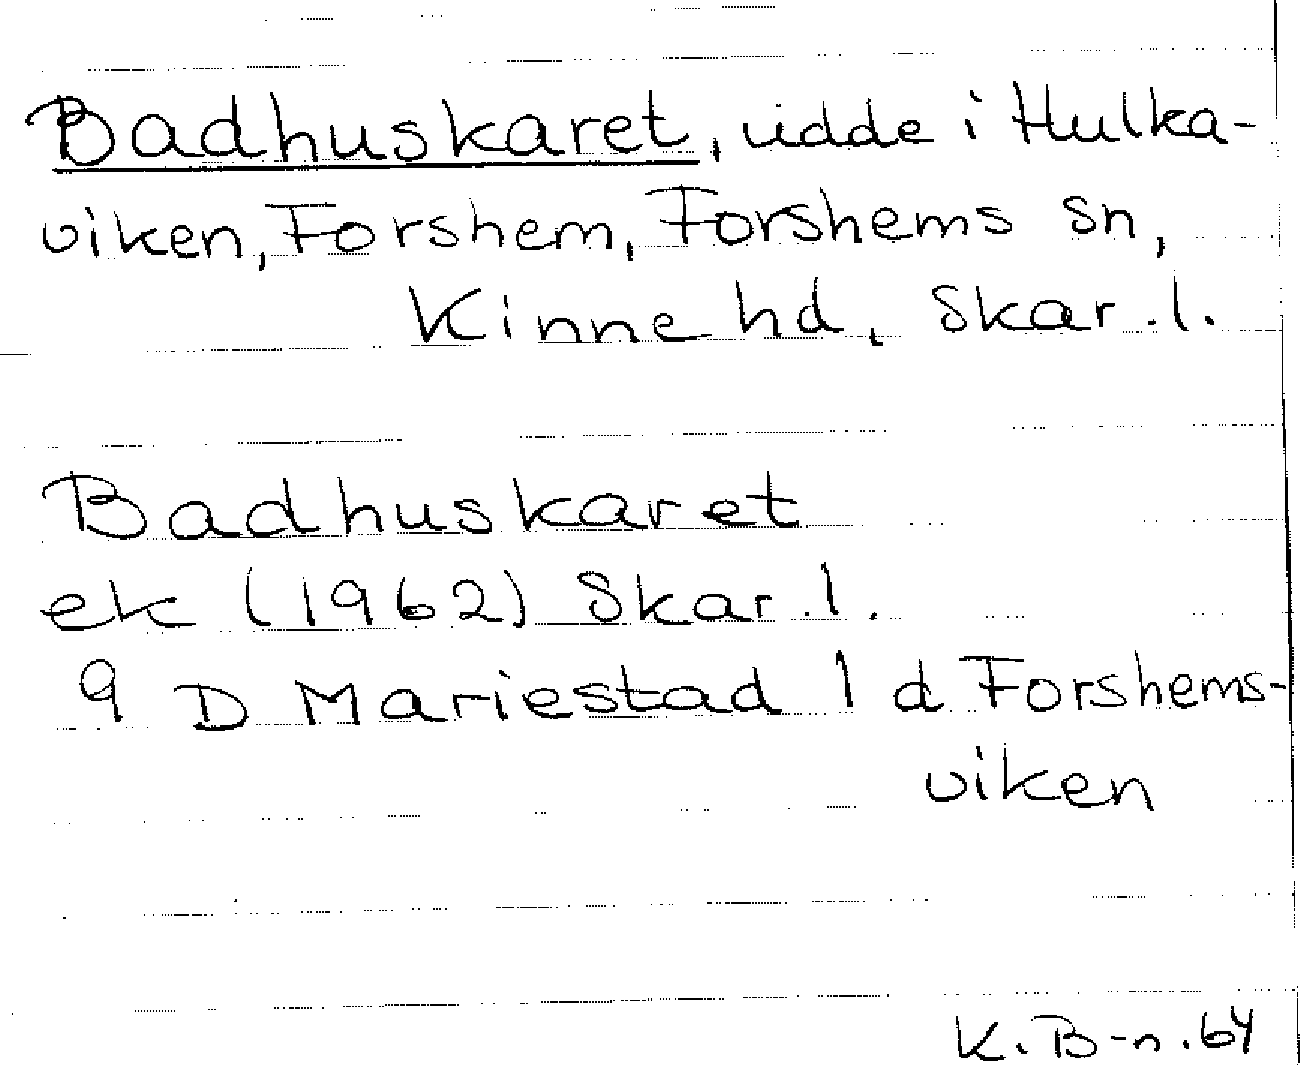 Badhuskaret, udde i Hulka-
viken, Forshem, Forshems sn,
Kinne hd, Skar.l.
Badhuskaret
ek (1962) Skar.l.
9 D Mariestad 1 d Forshems-
viken
K.B-n.64